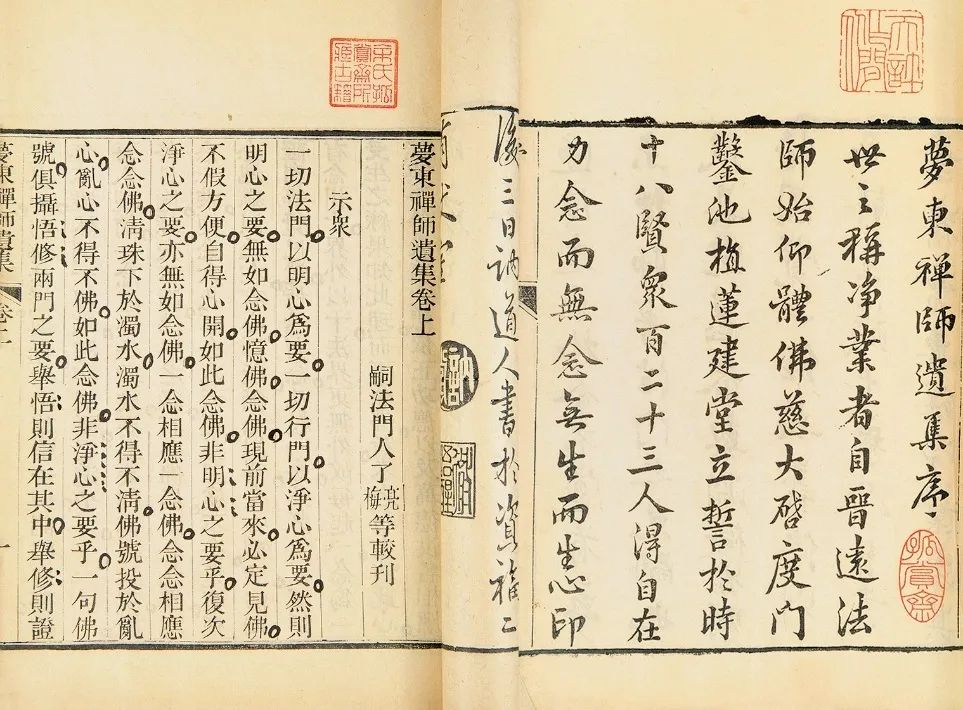 夢東禪師遺集序
世之稱净業者自晉遠法
師始仰體佛慈大啓度門
鑿池植蓮建堂立誓於時
十八賢衆百二十三人得自在
力念而無念无生而生心印
孤賞齋
後三日訥道人書於資福二
余氏孤賞齋所藏古籍
夢東禪師遺集卷上
嗣法門人了亮梅等較刊
示衆
一切法門以明心爲要一切行門以淨心爲要然則
明心之要無如念佛憶佛念佛現前當來必定見佛
不假方便自得心開如此念佛非明心之要乎復次
淨心之要亦無如念佛一念相應一念佛念念相應
念念佛清珠下於濁水濁水不得不清佛號投於亂
心亂心不得不佛如此念佛非淨心之要乎一句佛
號俱攝悟修兩門之要舉悟則信在其中舉修則證
夢東禪師遺集 卷上 一